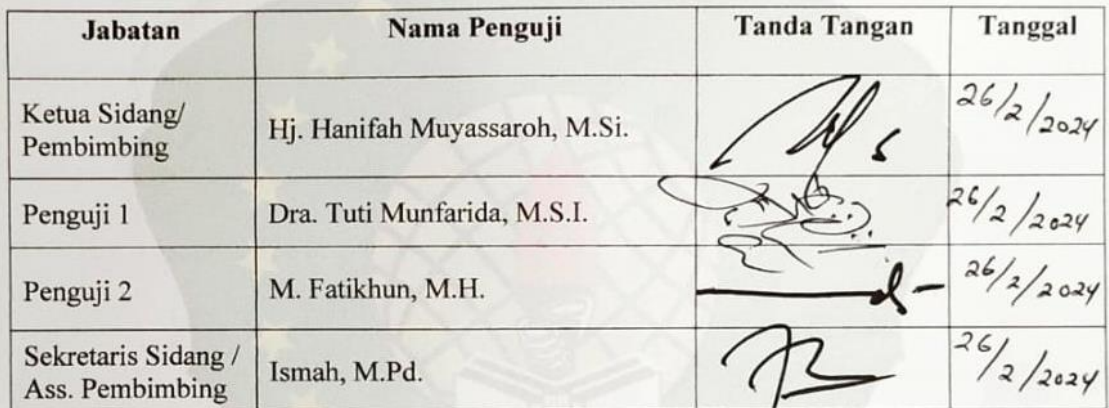 Jabatan Nama Penguji Tanda Tangan Tanggal
Ketua Sidang/
Pembimbing Hj. Hanifah Muyassaroh, M.Si. 26/2/2024
Penguji 1 Dra. Tuti Munfarida, M.S.I. 26/2/2024
Penguji 2 M. Fatikhun, M.H. 26/2/2024
Sekretaris Sidang /
Ass. Pembimbing Ismah, M.Pd. 26/2/2024